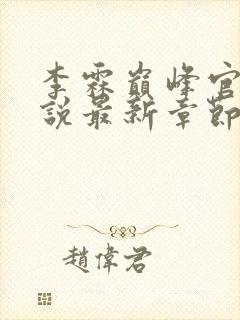 李霖巔峰官
說最新章節
趙偉君